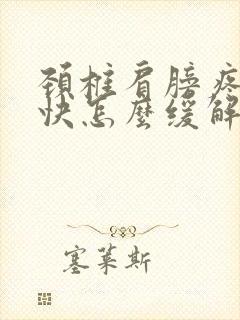 頸椎肩膀疼
快怎麼緩解
塞萊斯